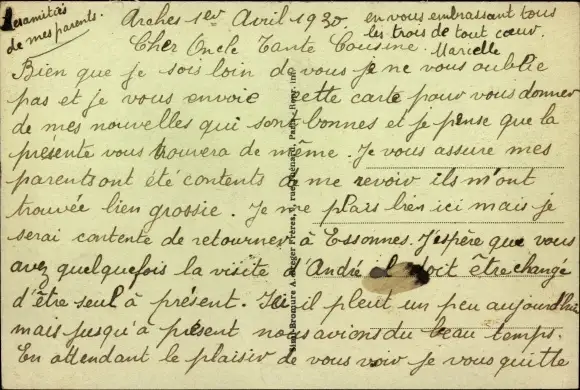 Les amitiés
de mes parents.
Arches 1er Avril 1930.
en vous embrassant tous
les trois de tout cœur.
Marielle
Cher Oncle Tante Cousine.
Bien que je sois loin de vous je ne vous oublie
pas et je vous envoie cette carte pour vous donner
de mes nouvelles qui sont bonnes et je pense que la
présente vous trouvera de même. Je vous assure mes
parents ont été contents de me revoir ils m'ont
trouvée bien grossie. Je me plais bien ici mais je
serai contente de retourner à Essonnes. J'espère que vous
avez quelquefois la visite d'André il doit être changé
d'être seul à présent. Ici il pleut un peu aujourd'hui
mais jusqu'à présent nous avions du beau temps.
En attendant le plaisir de vous voir je vous quitte